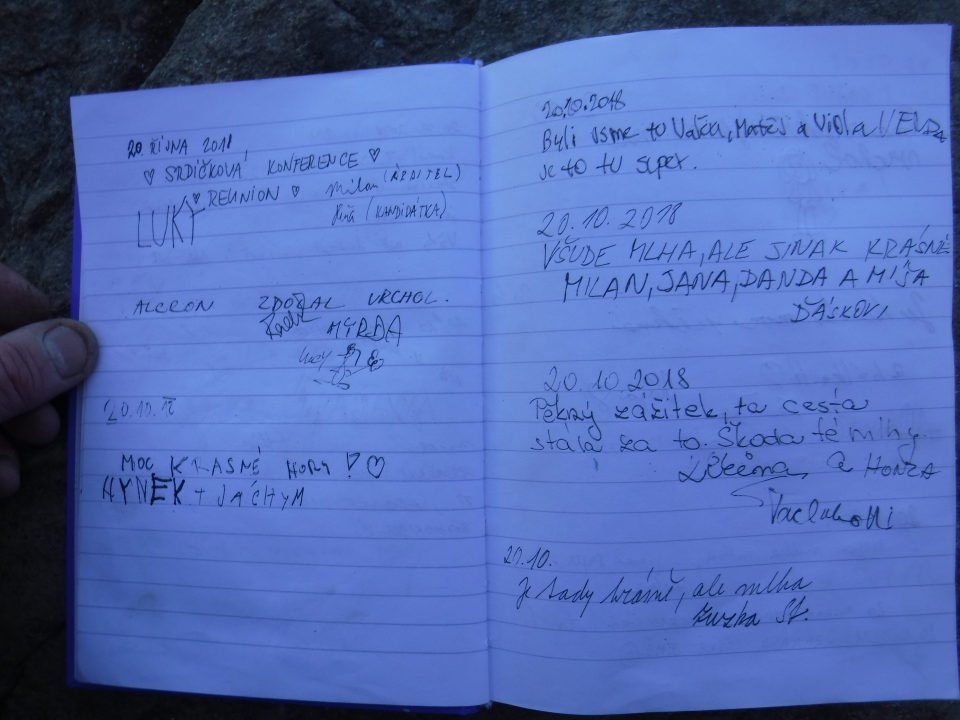 20. ŘÍJNA 2018
♡ SRDÍČKOVÁ KONFERENCE ♡
♡ REUNION ♡ Milan (ŘDITEL)
LUKY (KANDIDÁTKA)
ALCRON ZDOLAL VRCHOL.
MYRBA
20.10.18
MOC KRASNÉ HORY ! ♡
HYNEK + JÁCHYM
20.10.2018
Byli jsme tu Vašek, Matěs a Viola
je to tu super.
20.10.2018
VŠUDE MLHA, ALE JINAK KRÁSNĚ
MILAN, JANA, DANDA A MÍŠA
ĎÁSKOVI
20.10.2018
Pěkný zážitek, ta cesta
stála za to. Škoda té mlhy.
a HONZA
20.10.
Je tady krásně, ale mlha
Zuzka St.